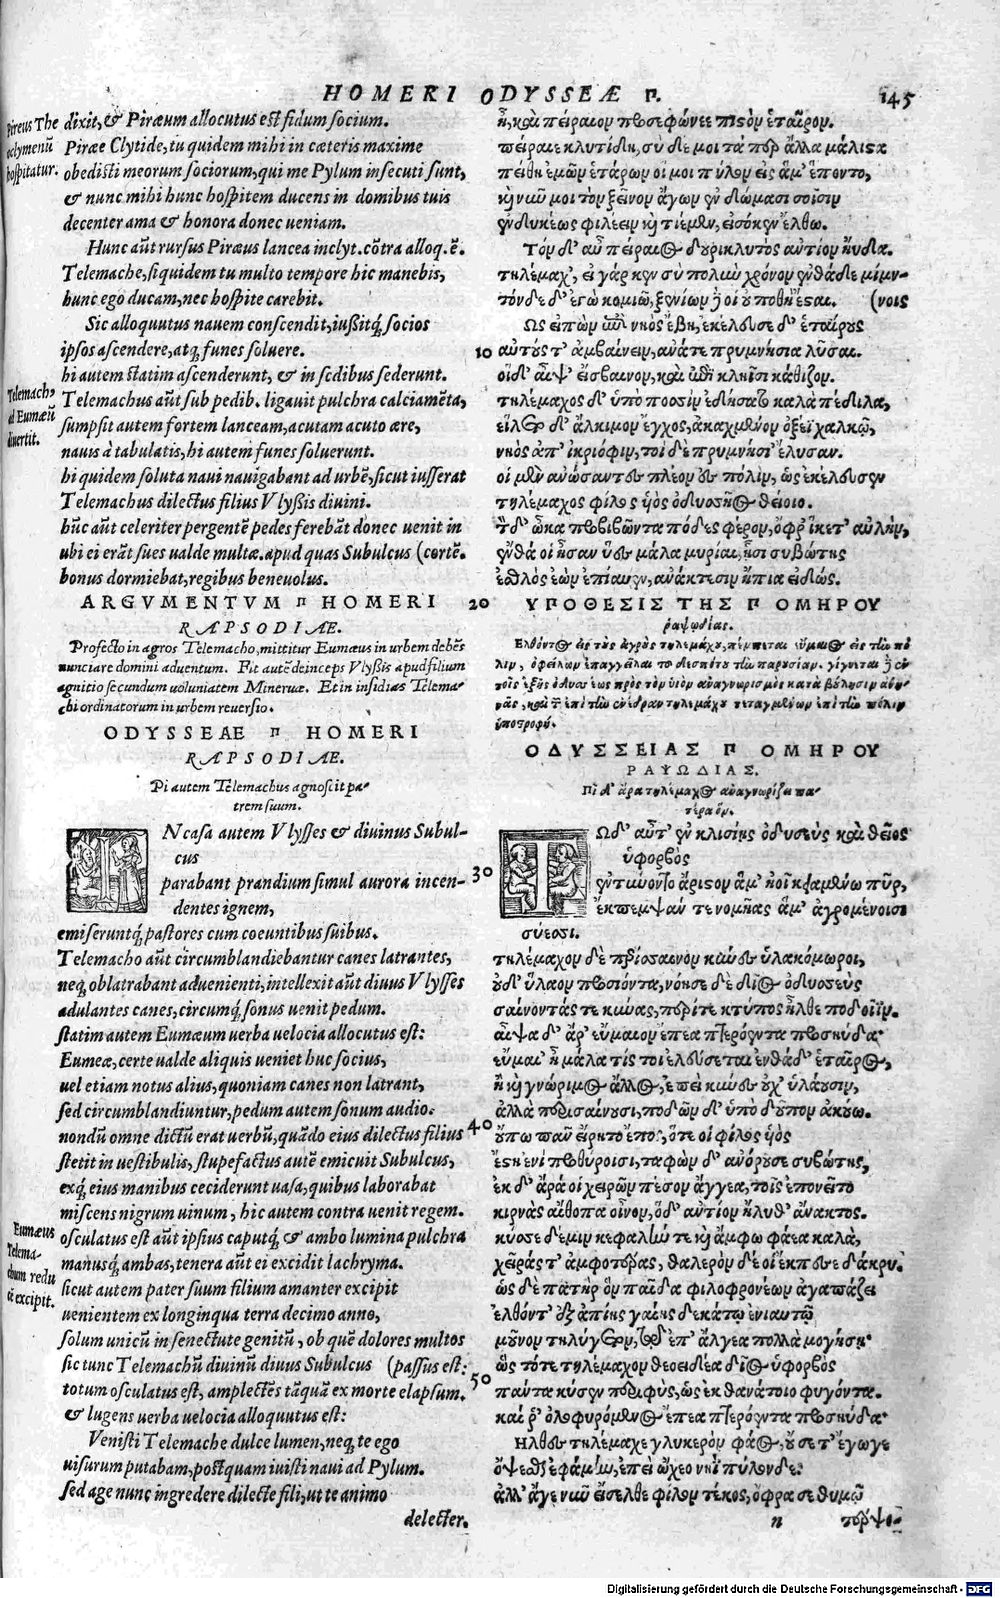 HOMERI ODYSSEÆ Π.
145
Pireus The
oclymenũ
hospitatur.
dixit, & Piræum allocutus est fidum socium.
Piræe Clytide, tu quidem mihi in cæteris maxime
obedisti meorum sociorum, qui me Pylum insecuti sunt,
& nunc mihi hunc hospitem ducens in domibus tuis
decenter ama & honora donec ueniam.
Hunc aũt rursus Piræus lancea inclyt. cõtra alloq. ẽ.
Telemache, siquidem tu multo tempore hic manebis,
hunc ego ducam, nec hospite carebit.
Sic alloquutus nauem conscendit, iußitq́; socios
ipsos ascendere, atq; funes soluere.
hi autem statim ascenderunt, & in sedibus sederunt.
Telemach9
ad Eumæũ
diuertit.
Telemachus aũt sub pedib. ligauit pulchra calciamẽta,
sumpsit autem fortem lanceam, acutam acuto ære,
nauis à tabulatis, hi autem funes soluerunt.
hi quidem soluta naui nauigabant ad urbẽ, sicut iusserat
Telemachus dilectus filius Vlyßis diuini.
hũc aũt celeriter pergentẽ pedes ferebãt donec uenit in
ubi ei erãt sues ualde multæ. apud quas Subulcus (cortẽ.
bonus dormiebat, regibus beneuolus.
ARGVMENTVM Π HOMERI
RAPSODIÆ.
Profecto in agros Telemacho, mittitur Eumæus in urbem debẽs
nunciare domini aduentum. Fit autẽ deinceps Vlyßis apud filium
agnitio secundum uoluniatem Mineruæ. Et in insidias Telema-
chi ordinatorum in urbem reuersio.
ODYSSEAE Π HOMERI
RAPSODIÆ.
Pi autem Telemachus agnoscit pa-
trem suum.
IN casa autem Vlysses & diuinus Subul-
cus
parabant prandium simul aurora incen-
dentes ignem,
emiseruntq́; pastores cum coeuntibus suibus.
Telemacho aũt circumblandiebantur canes latrantes,
neq; oblatrabant aduenienti, intellexit aũt diuus Vlysses
adulantes canes, circumq́; sonus uenit pedum.
statim autem Eumæum uerba uelocia allocutus est:
Eumæe, certe ualde aliquis ueniet huc socius,
uel etiam notus alius, quoniam canes non latrant,
sed circumblandiuntur, pedum autem sonum audio.
nondũ omne dictũ erat uerbũ, quãdo eius dilectus filius
stetit in uestibulis, stupefactus autẽ emicuit Subulcus,
exq́; eius manibus ceciderunt uasa, quibus laborabat
miscens nigrum uinum, hic autem contra uenit regem.
Eumæus
Telema-
chum redu
cẽ excipit.
osculatus est aũt ipsius caputq́; & ambo lumina pulchra
manusq́; ambas, tenera aũt ei excidit lachryma.
sicut autem pater suum filium amanter excipit
uenientem ex longinqua terra decimo anno,
solum unicũ in senectute genitũ, ob quẽ dolores multos
sic tunc Telemachũ diuinũ diuus Subulcus (passus est:
totum osculatus est, amplectẽs tãquã ex morte elapsum.
& lugens uerba uelocia alloquutus est:
Venisti Telemache dulce lumen, neq; te ego
uisurum putabam, postquam iuisti naui ad Pylum.
sed age nunc ingredere dilecte fili, ut te animo
delecter.
ἦ, καὶ πείραιον προσεφώνεε πιστὸν ἑταῖρον.
πείραιε κλυτίδη, σὺ δέ μοι τὰ περ ἄλλα μάλιστα
πείθῃ ἐμῶν ἑτάρων οἵ μοι πύλον εἰς ἅμ' ἕποντο,
καὶ νῦν μοι τὸν ξεῖνον ἄγων ἐν δώμασι σοῖσιν
ἐνδυκέως φιλέειν καὶ τιέμεν, εἰσόκεν ἔλθω.
Τὸν δ' αὖ πείραιος δουρικλυτὸς ἀντίον ηὔδα.
τηλέμαχ', εἰ γάρ κεν σὺ πολὺν χρόνον ἐνθάδε μίμν-
τόνδε δ' ἐγὼ κομιῶ, ξενίων δέ οἱ οὐ ποθὴ ἔσται. (νοις
Ως εἰπὼν ἐπὶ νηὸς ἔβη, ἐκέλευσε δ' ἑταίρους
10 αὐτούς τ' ἀμβαίνειν, ἀνά τε πρυμνήσια λῦσαι.
οἱ δ' αἶψ' εἴσβαινον, καὶ ἐπὶ κληῖσι κάθιζον.
τηλέμαχος δ' ὑπὸ ποσσὶν ἐδήσατο καλὰ πέδιλα,
εἵλετο δ' ἄλκιμον ἔγχος, ἀκαχμένον ὀξέϊ χαλκῷ,
νηὸς ἀπ' ἰκριόφιν, τοὶ δὲ πρυμνήσι' ἔλυσαν.
οἱ μὲν ἀνώσαντες πλέον ἐς πόλιν, ὡς ἐκέλευσεν
τηλέμαχος φίλος υἱὸς ὀδυσσῆος θείοιο.
τὸν δ' ὦκα προβιβῶντα πόδες φέρον, ὄφρ' ἵκετ' αὐλὴν,
ἔνθά οἱ ἦσαν ὕες μάλα μυρίαι, ᾗσι συβώτης
ἐσθλὸς ἐὼν ἐπίαυεν, ἀνάκτεσιν ἤπια εἰδώς.
20 ΥΠΟΘΕΣΙΣ ΤΗΣ Π ΟΜΗΡΟΥ
ῥαψῳδίας.
Ελθόντος εἰς τοὺς ἀγροὺς τηλεμάχου, πέμπεται εὔμαιος εἰς τὴν πό
λιν, ὀφείλων ἐπαγγεῖλαι τῷ δεσπότου τὴν παρουσίαν. γίνεται δὲ ἐν
τοῖς ἑξῆς ὀδυσσέως πρὸς τὸν υἱὸν ἀναγνωρισμὸς κατὰ βούλησιν ἀθη-
νᾶς, καὶ τῶν ἐπὶ τὴν ἐνέδραν τηλεμάχου τεταγμένων ἐπὶ τὴν πόλιν
ὑποστροφή.
ΟΔΥΣΣΕΙΑΣ Π ΟΜΗΡΟΥ
ΡΑΨΩΔΙΑΣ.
Πῖ δ' ἄρα τηλέμαχος ἀναγνωρίζει πα-
τέρα ὅν.
ΤΩ δ' αὖτ' ἐν κλισίῃς ὀδυσεὺς καὶ θεῖος
ὑφορβὸς
30 ἐντύνοντο ἄριστον ἅμ' ἠοῖ κειαμένω πῦρ,
ἔκπεμψάν τε νομῆας ἅμ' ἀγρομένοισι
σύεσσι.
τηλέμαχον δὲ περίσσαινον κύνες ὑλακόμωροι,
οὐδ' ὕλαον προσιόντα, νόησε δὲ δῖος ὀδυσσεὺς
σαίνοντάς τε κύνας, περί τε κτύπος ἦλθε ποδοῖϊν.
αἶψα δ' ἄρ' εὔμαιον ἔπεα πτερόεντα προσηύδα·
εὔμαι' ἦ μάλα τίς τοι ἐλεύσεται ἐνθάδ' ἑταῖρος,
ἢ καὶ γνώριμος ἄλλος, ἐπεὶ κύνες οὐχ ὑλάουσιν,
ἀλλὰ περισσαίνουσι, ποδῶν δ' ὑπὸ δοῦπον ἀκούω.
40 οὔπω πᾶν εἴρητο ἔπος, ὅτε οἱ φίλος υἱὸς
ἔστη ἐνὶ προθύροισι, ταφὼν δ' ἀνόρουσε συβώτης,
ἐκ δ' ἄρα οἱ χειρῶν πέσον ἄγγεα, τοῖς ἐπονεῖτο
κιρνὰς αἴθοπα οἶνον, ὁ δ' ἀντίον ἤλυθ' ἄνακτος.
κύσσε δέ μιν κεφαλήν τε καὶ ἄμφω φάεα καλὰ,
χεῖράς τ' ἀμφοτέρας, θαλερὸν δέ οἱ ἔκπεσε δάκρυ.
ὡς δὲ πατὴρ ὃν παῖδα φιλοφρονέων ἀγαπάζει
ἐλθόντ' ἐξ ἀπίης γαίης δεκάτῳ ἐνιαυτῷ
μοῦνον τηλύγετον, τῷ ἐπ' ἄλγεα πολλὰ μογήσῃ·
ὣς τότε τηλέμαχον θεοειδέα δῖος ὑφορβὸς
50 πάντα κύσεν περιφὺς, ὡς ἐκ θανάτοιο φυγόντα.
καί ῥ' ὀλοφυρόμενος ἔπεα πτερόεντα προσηύδα·
Ηλθες τηλέμαχε γλυκερὸν φάος, οὔ σε τ' ἔγωγε
ὄψεσθαι ἐφάμην, ἐπεὶ ᾤχεο νηῒ πύλονδε.
ἀλλ' ἄγε νῦν εἴσελθε φίλον τέκος, ὄφρα σε θυμῷ
n
τέρψο-
Digitalisierung gefördert durch die Deutsche Forschungsgemeinschaft - DFG